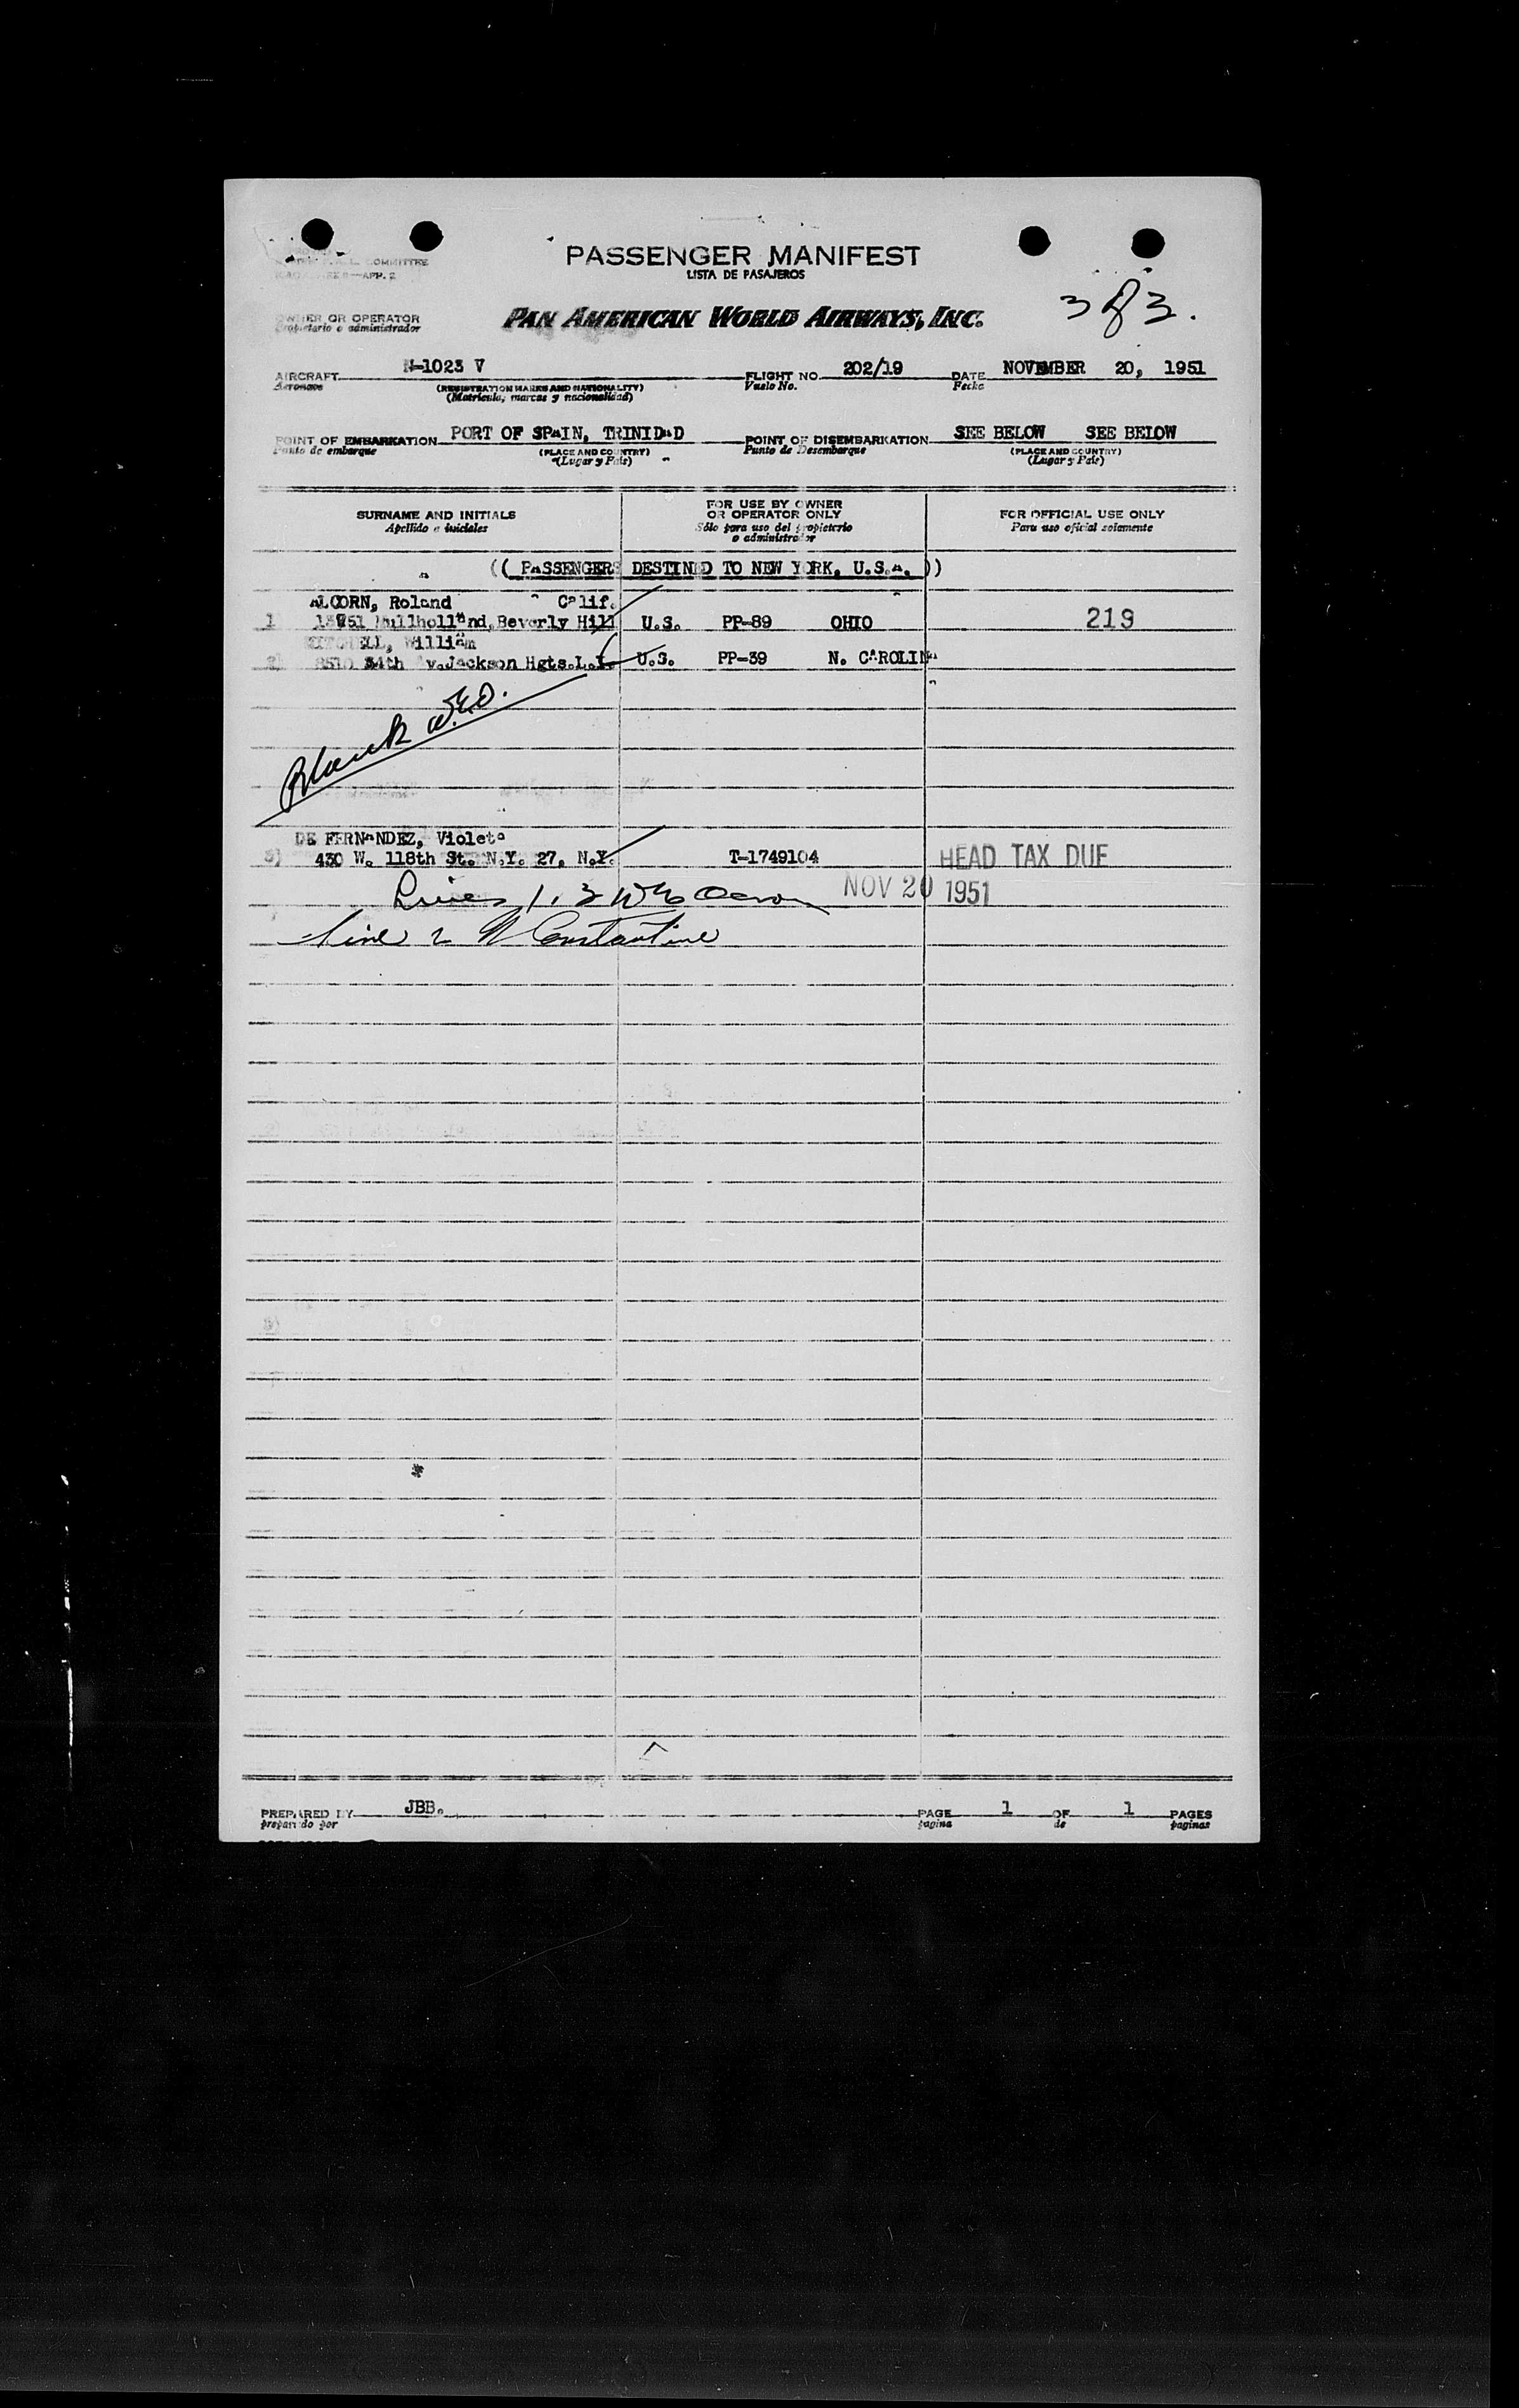 PASSENGER MANIFEST
LISTA DE PASAJEROS
COMMITTEE
APP. 2
383.
OWNER OR OPERATOR
Propietario o administrador
PAN AMERICAN WORLD AIRWAYS, INC.
AIRCRAFT N-1023 V FLIGHT NO. 202/19 DATE NOVEMBER 20, 1951
Aeronave (REGISTRATION MARKS AND NATIONALITY) Vuelo No. Fecha
(Matricula, marcas y nacionalidad)
POINT OF EMBARKATION PORT OF SPAIN, TRINIDAD POINT OF DISEMBARKATION SEE BELOW SEE BELOW
Punto de embarque (PLACE AND COUNTRY) Punto de Desembarque (PLACE AND COUNTRY)
(Lugar y Pais) (Lugar y Pais)
SURNAME AND INITIALS FOR USE BY OWNER OR OPERATOR ONLY FOR OFFICIAL USE ONLY
Apellido e iniciales Sólo para uso del propietario o administrador Para uso oficial solamente
(( PASSENGERS DESTINED TO NEW YORK, U.S.A. ))
ALCORN, Roland Calif.
1 Mullholland, Beverly Hill U.S. PP-89 OHIO 219
MITCHELL, William
2) 34th Av. Jackson Hgts. L.I. U.S. PP-39 N. CAROLINA
Blank W.E.O.
DE FERNANDEZ, Violeta
3) 430 W. 118th St. N.Y. 27, N.Y. T-1749104 HEAD TAX DUE
Lines 1, 3 NOV 20 1951
Line 2 Constantine
PREPARED BY JBB. PAGE 1 OF 1 PAGES
preparado por pagina de paginas